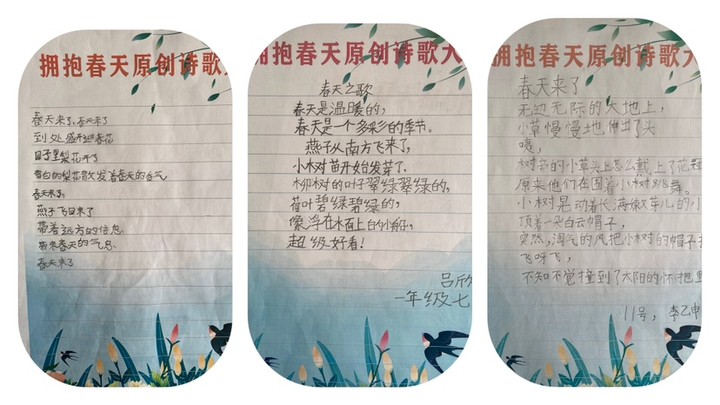 拥抱春天原创诗歌大
春天来了,春天来了
到处盛开迎春花
园子里梨花开了
雪白的梨花散发着春天的香气
春天来了,
燕子飞回来了
带着远方的信息
带来春天的气息
春天来了
拥抱春天原创诗歌大
春天之歌
春天是温暖的,
春天是一个多彩的季节。
燕子从南方飞来了,
小树苗开始发芽了.
柳树的叶子翠绿翠绿的,
荷叶碧绿碧绿的,
像浮在水面上的小船,
超级好看!
吕欣
一年级七
拥抱春天原创诗歌大
春天来了
无边无际的大地上,
小草慢慢地伸出了头
嘿,
树苗的小草头上怎么戴上了花
原来他们在围着小树跳舞。
小树晃动着长满嫩芽儿的小
顶着一朵白云帽子,
突然,淘气的风把小树的帽子
飞呀飞,
不知不觉撞到了太阳的怀抱里
11号,李乙申